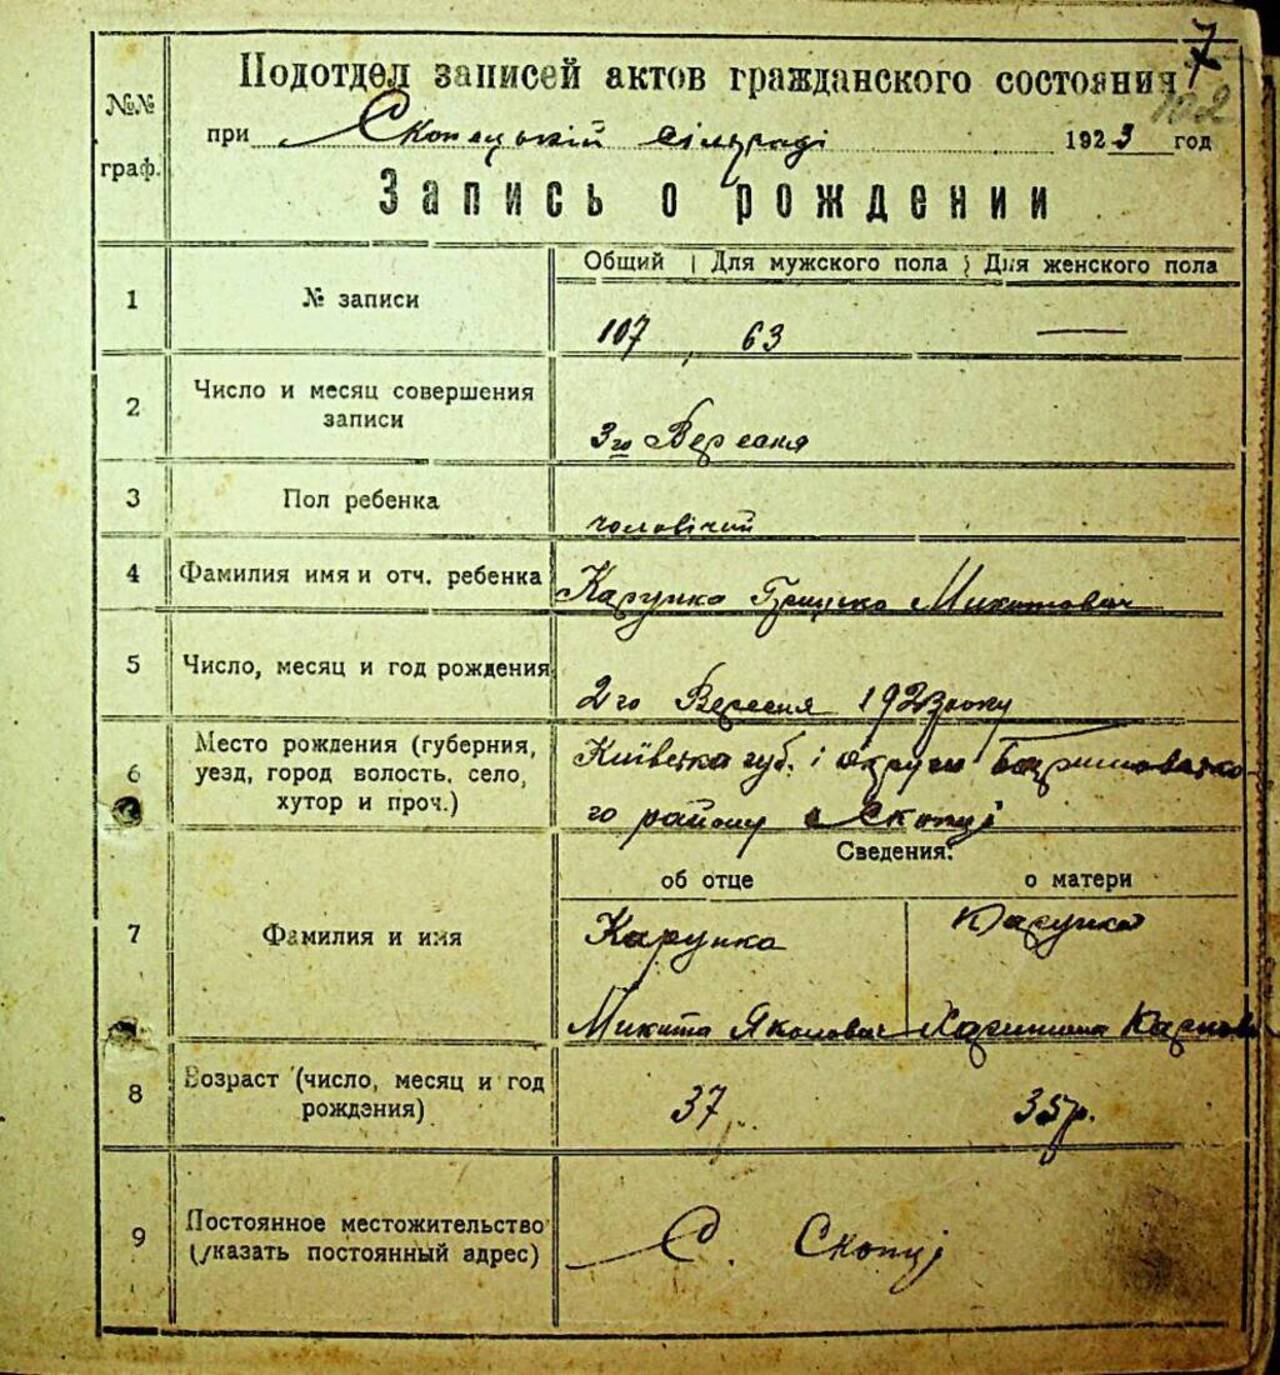 7
102
№№ граф.
Подотдел записей актов гражданского состояния
при Скопецькій сільраді 1923 год
Запись о рождении
Общий | Для мужского пола | Для женского пола
1 № записи 107 63 —
2 Число и месяц совершения записи 3го Вересня
3 Пол ребенка чоловічий
4 Фамилия имя и отч. ребенка Карупка Грицько Микитович
5 Число, месяц и год рождения 2го Вересня 1923 року
6 Место рождения (губерния, уезд, город волость, село, хутор и проч.) Київська губ. і округи Баришовсько-
го району с Скопці
Сведения:
об отце о матери
7 Фамилия и имя Карупка Карупка
Микита Якович Харитина
8 Возраст (число, месяц и год рождения) 37 35р.
9 Постоянное местожительство (указать постоянный адрес) С. Скопці